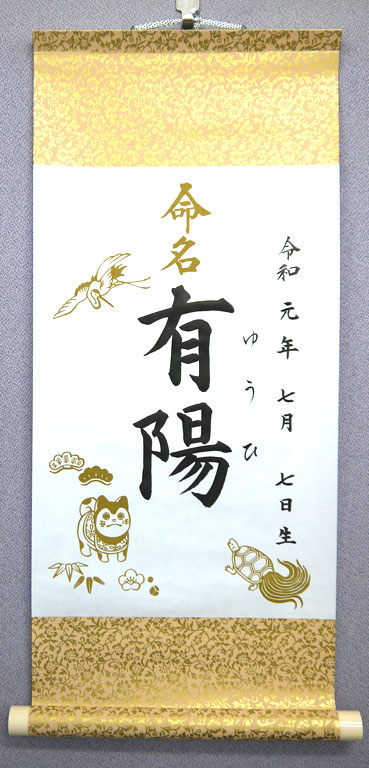 令和元年七月七日生
命名
有陽
ゆうひ